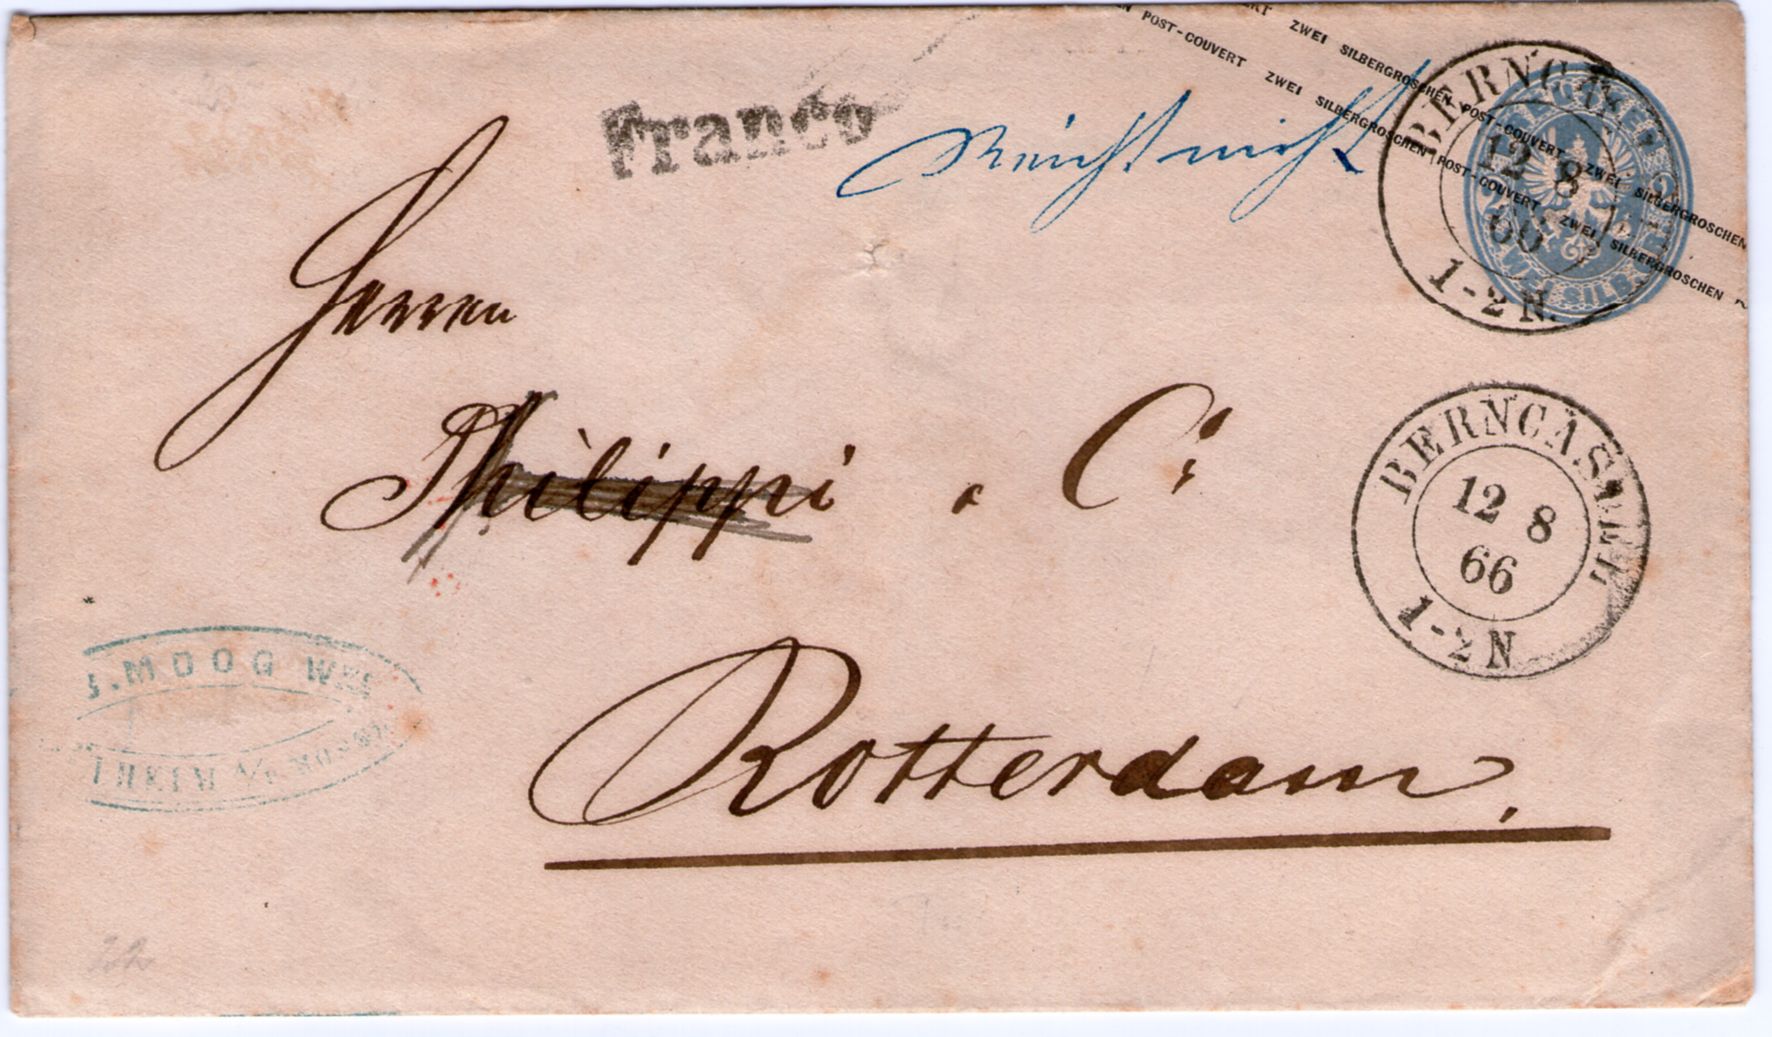 POST-COUVERT ZWEI SILBERGROSCHEN POST-COUVERT ZWEI SILBERGROSCHEN
POST-COUVERT ZWEI SILBERGROSCHEN POST-COUVERT ZWEI SILBERGROSCHEN
Franco
Reicht nicht
BERNCA
12 8
66
1-2 N.
ZWEI SILB.
Herren
Philippi & Cº
BERNCASTEL
12 8
66
1-2 N
MOOG Wwe
A/D MOSEL
Rotterdam.